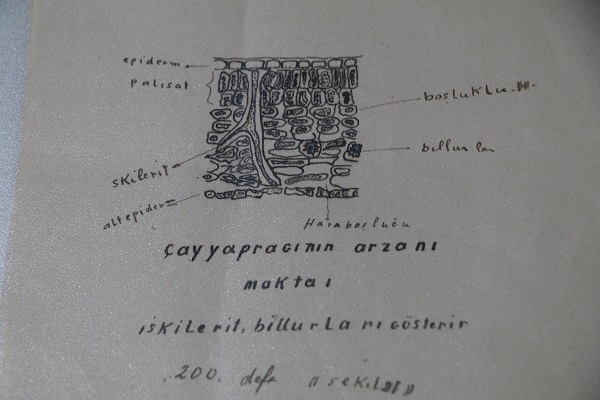 epiderm
palisat
boşluklu.H.
billurlar
skilerit
altepiderm
Havaboşluğu
çay yapraGının arzanı
maktaı
iskilerit, billurları GÖsterir
200. defa